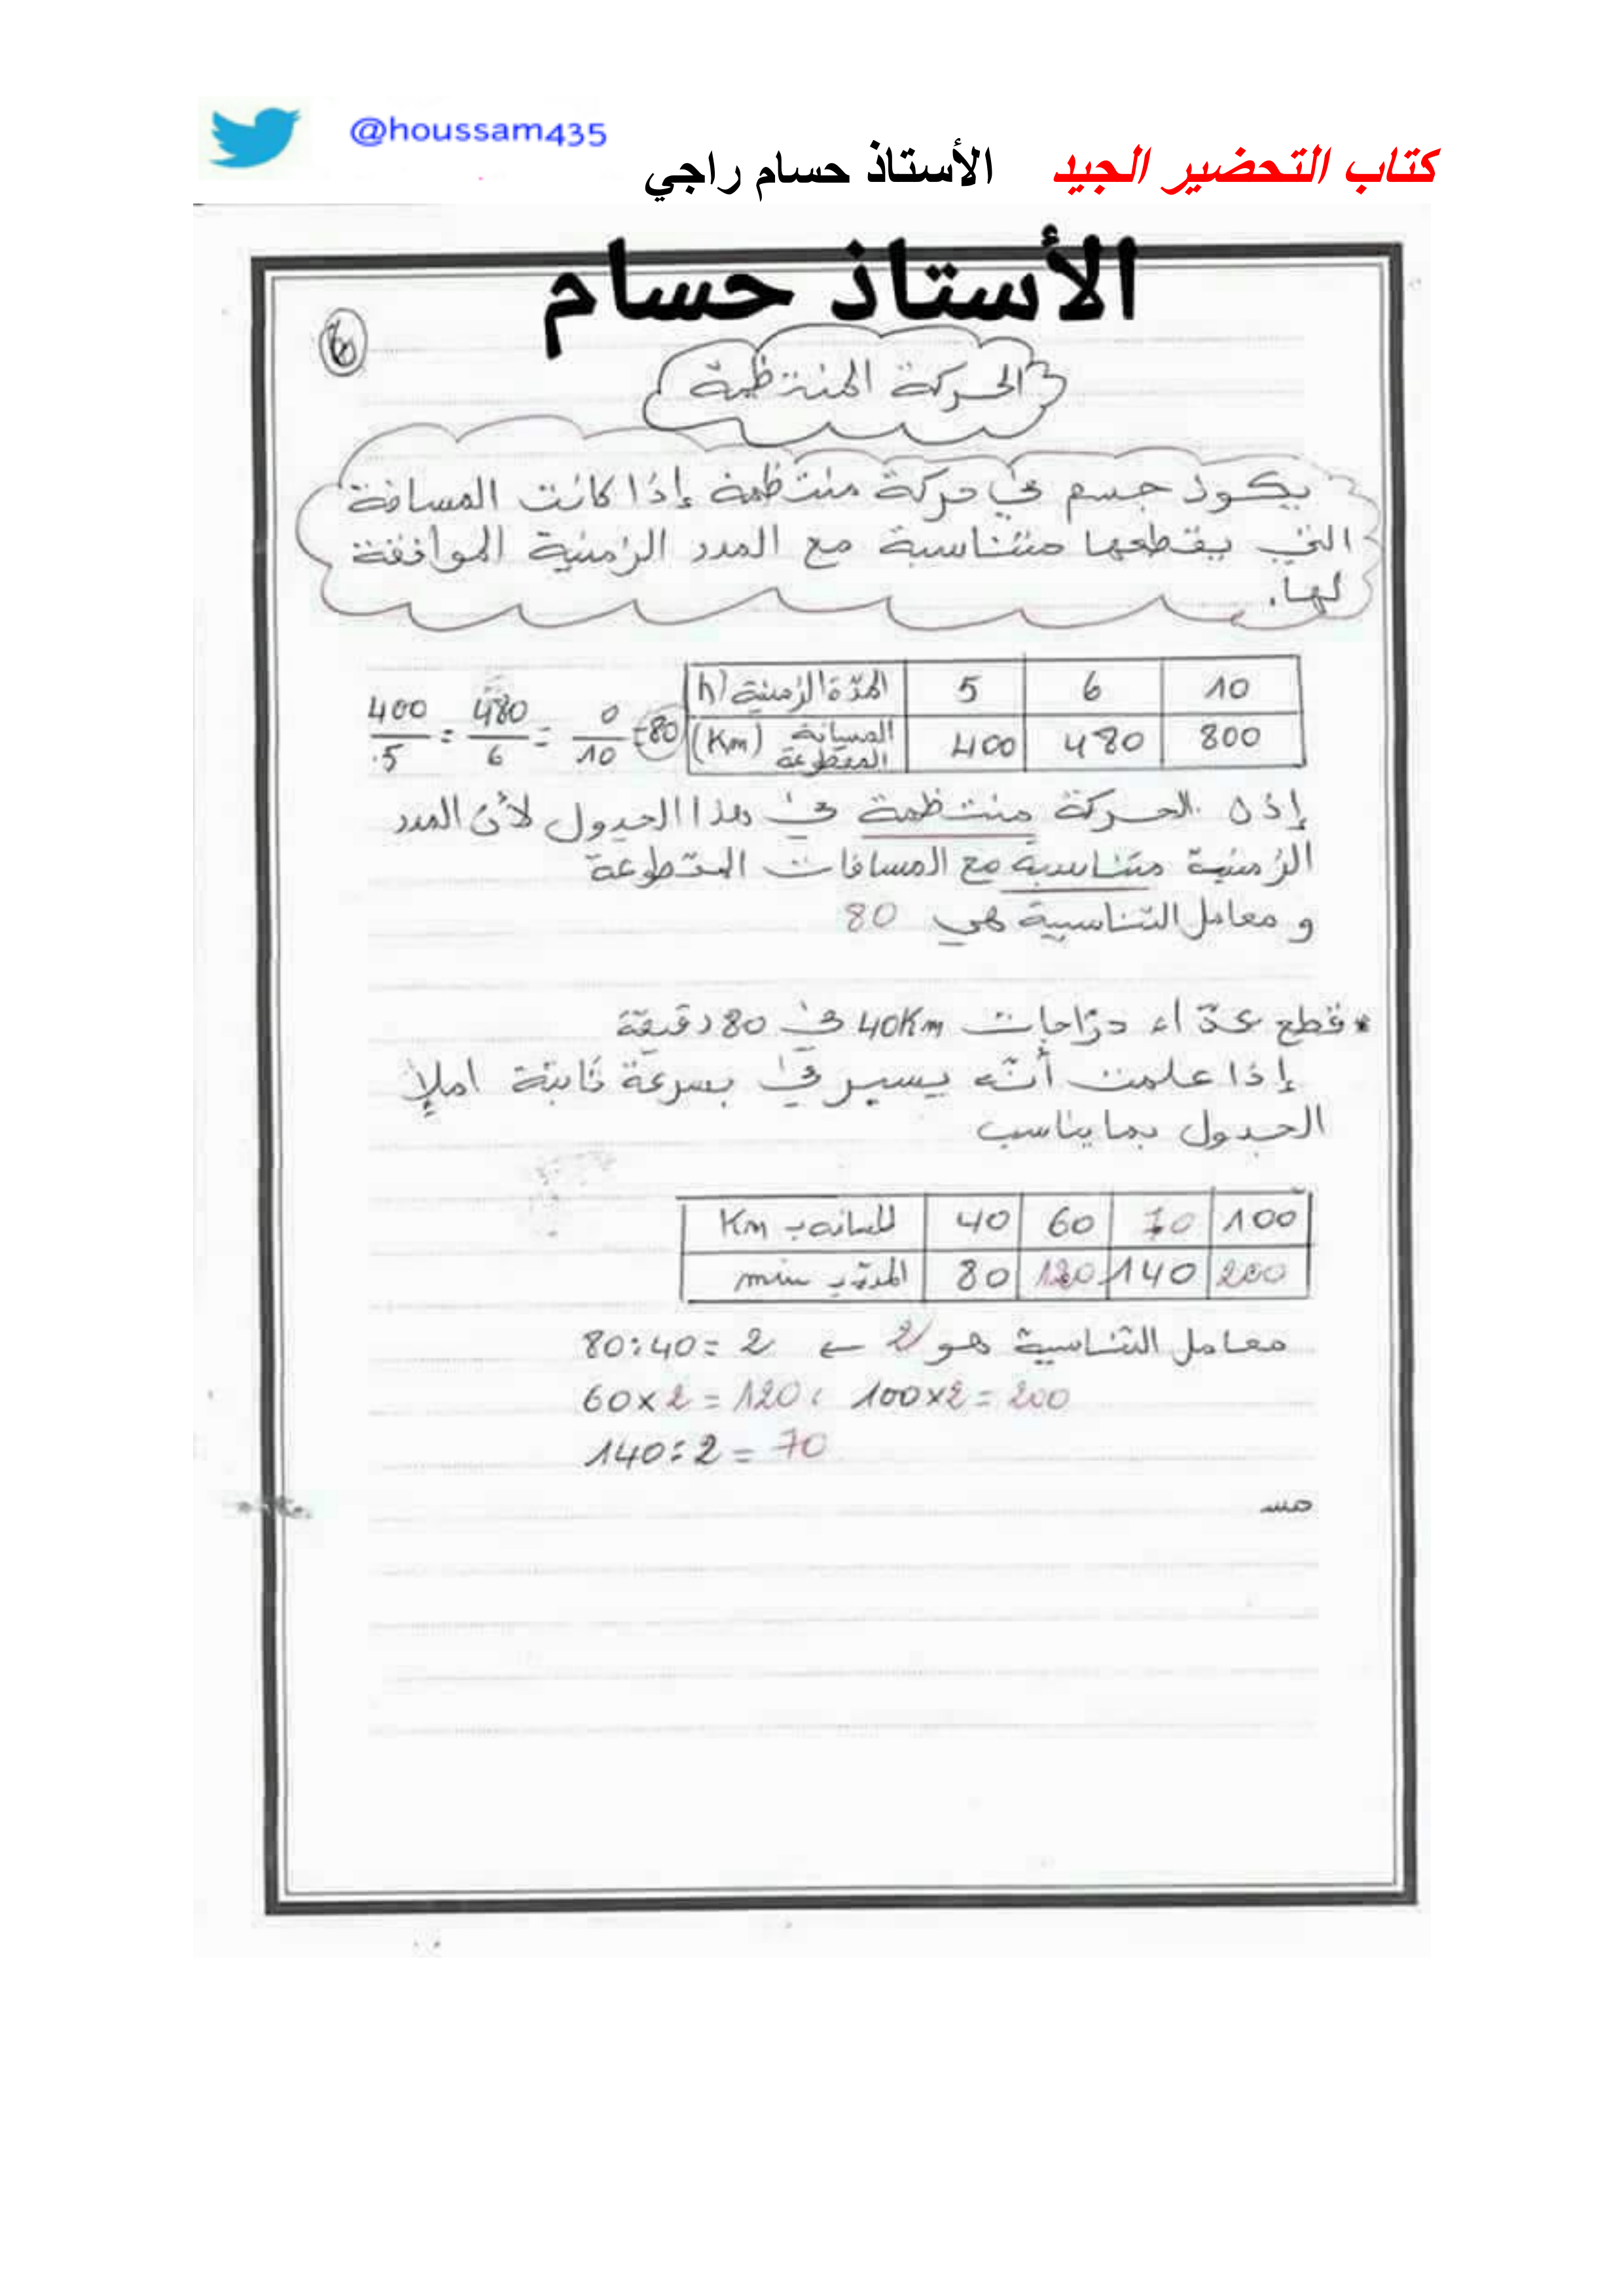 @houssam435
كتاب التحضير الجيد الأستاذ حسام راجي
الأستاذ حسام
الحركة المنتظمة
يكون جسم في حركة منتظمة إذا كانت المسافة
التي يقطعها متناسبة مع المدد الزمنية الموافقة
لها.
المدّة الزمنية (h 5 6 10
المسافة المقطوعة (Km) 400 480 800
400/5 = 480/6 = 0/10 = 80
إذن الحركة منتظمة في هذا الجدول لأن المدد
الزمنية متناسبة مع المسافات المقطوعة
و معامل التناسبية هي 80
* قطع عدّاء درّاجات 40Km في 80 دقيقة
إذا علمت أنّه يسير في بسرعة ثابتة املإ
الجدول بما يناسب
المسافة بـ Km 40 60 70 100
المدة بـ min 80 120 140 200
معامل التناسبية هو 2 ← 80:40= 2
60×2=120، 100×2=200
140÷2=70